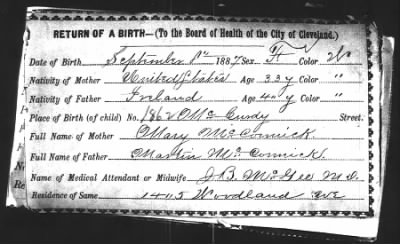 RETURN OF A BIRTH—(To the Board of Health of the City of Cleveland.)
Date of Birth September 1st 1887 Sex F Color W
Nativity of Mother United States Age 33 y Color "
Nativity of Father Ireland Age 40 y Color "
Place of Birth (of child) No. 1862 McCurdy Street.
Full Name of Mother Mary McCormick
Full Name of Father Martin McCormick.
Name of Medical Attendant or Midwife J. B. McGee M.D.
Residence of Same 1405 Woodland ave